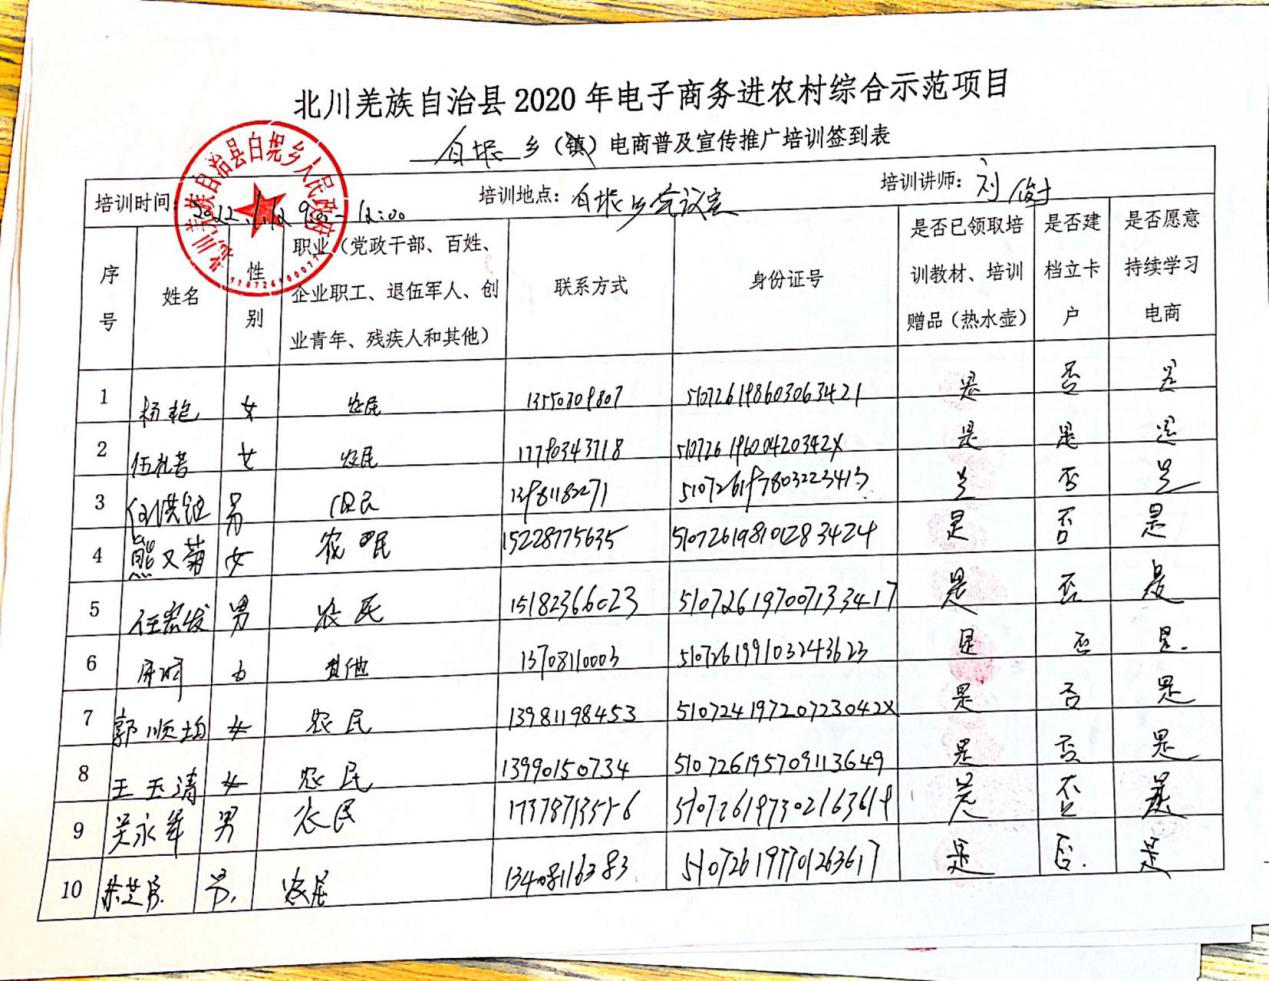 北川羌族自治县2020年电子商务进农村综合示范项目
白坭乡（镇）电商普及宣传推广培训签到表
北川羌族自治县白坭乡人民政府
培训时间: 9:00-12:00 培训地点: 白坭乡会议室 培训讲师: 刘俊才
序号 姓名 性别 职业（党政干部、百姓、企业职工、退伍军人、创业青年、残疾人和其他） 联系方式 身份证号 是否已领取培训教材、培训赠品（热水壶） 是否建档立卡户 是否愿意持续学习电商
1 杨艳 女 农民 13550709807 510726198603063421 是 否 是
2 女 农民 17790343718 51072619600420342X 是 是 是
3 男 农民 13981182271 510726197803223413 是 否 是
4 熊义菊 女 农民 15228775635 510726198101283424 是 否 是
5 任宏发 男 农民 15182366023 510726197007133417 是 否 是
6 女 其他 13708110003 510726199103243623 是 否 是.
7 郭顺均 女 农民 13981198453 51072419720723042X 是 否 是
8 王玉清 女 农民 13990150734 510726195709113649 是 否 是
9 吴永军 男 农民 510726197302163619 是 否 是
10 男. 农民 13408116383. 510726197701263617 是 否. 是